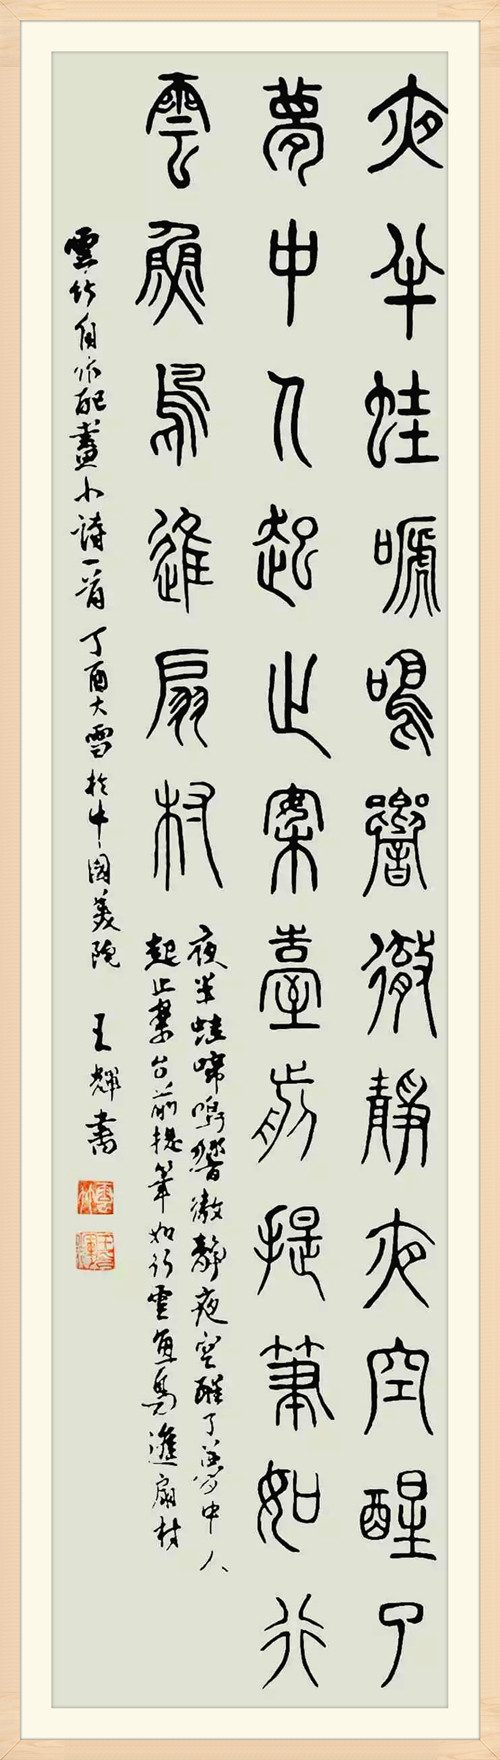 夜半蛙嗁鳴響徹靜夜空醒了
夢中人起止案臺前提筆如行
雲魚鳥進扇村
夜半蛙啼鳴響徹靜夜空醒了夢中人
起止案台前提筆如行雲魚鳥進扇村
雲竹自作配畫小詩一首 丁酉大雪於中國美院 王輝書